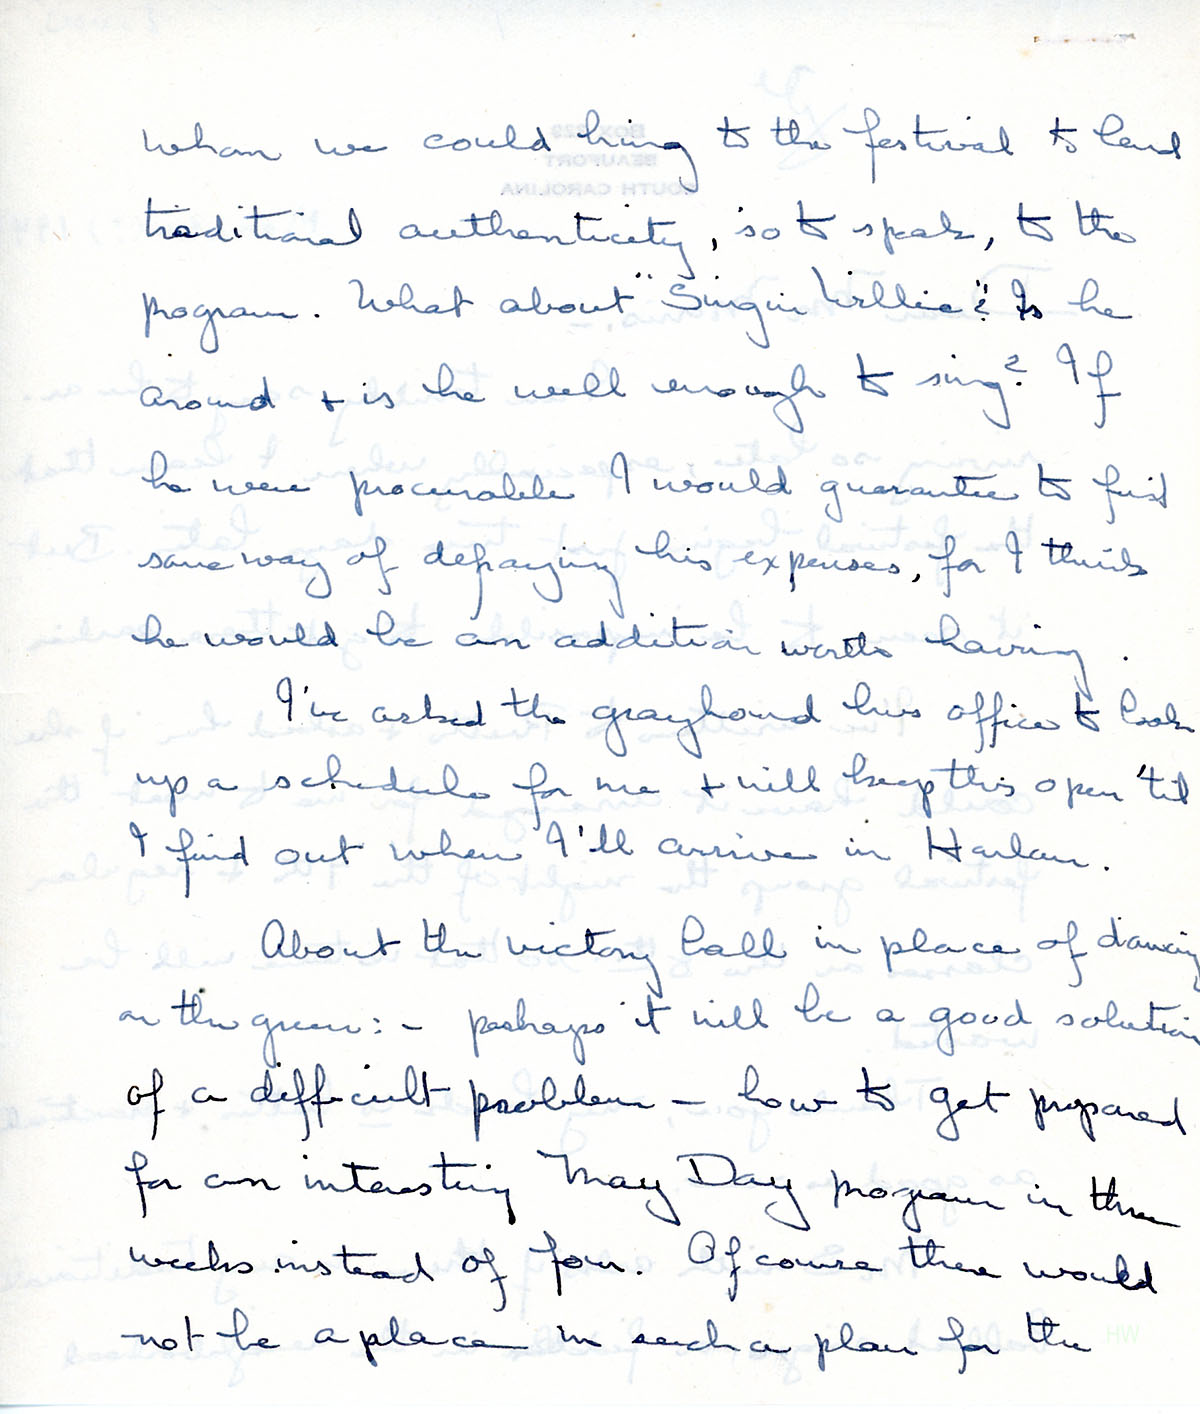 whom we could bring to the festival to lend
traditional authenticity, so to speak, to the
program. What about "Singin Willie"? Is he
around + is he well enough to sing? If
he were procurable I would guarantee to find
some way of defraying his expenses, for I think
he would be an addition worth having.
I've asked the grayhound bus office to look
up a schedule for me + will keep this open 'til
I find out when I'll arrive in Harlan.
About the victory ball in place of dancing
on the green: - perhaps it will be a good solution
of a difficult problem - how to get prepared
for an interesting May Day program in three
weeks instead of four. Of course there would
not be a place in such a plan for the
HW
BOX
BEAUFORT
SOUTH CAROLINA